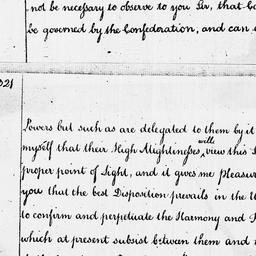 not be necessary to observe to you Sir, that
be governed by the Confederation, and can
321
Powers but such as are delegated to them by it
myself that their High Mightinesses will view this
proper point of Light, and it gives me pleasure
you that the best Disposition prevails in the
to confirm and perpetuate the Harmony and
which at present subsist between them and